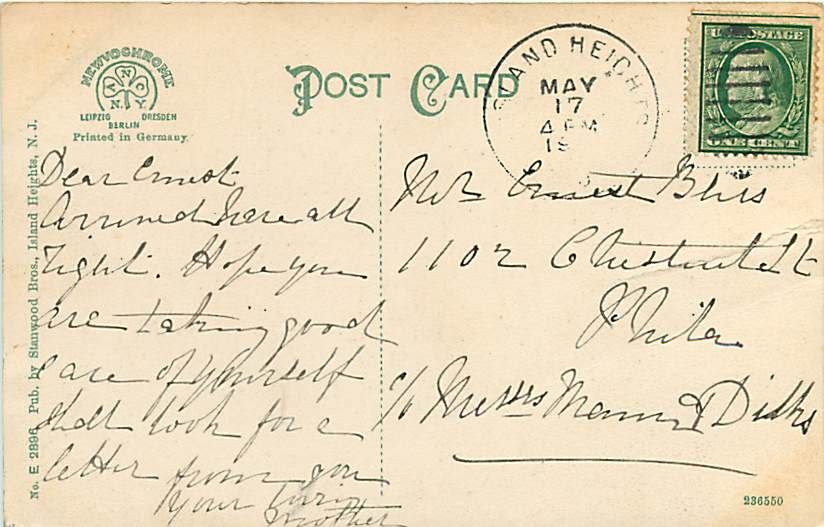 NEWVOCHROME
ANO
N.Y
LEIPZIG DRESDEN
BERLIN
Printed in Germany.
POST CARD
ISLAND HEIGHTS
MAY
17
4 PM
19
U.S. POSTAGE
ONE CENT
No. E 2896 Pub. by Stanwood Bros., Island Heights, N. J.
Dear Ernest
Arrived here all
right. Hope you
are taking good
care of yourself
shall look for a
letter from you
Your loving
mother
Mr. Ernest Bliss
1102 Chestnut St
Phila
c/o Messrs Mann & Dilks
236550